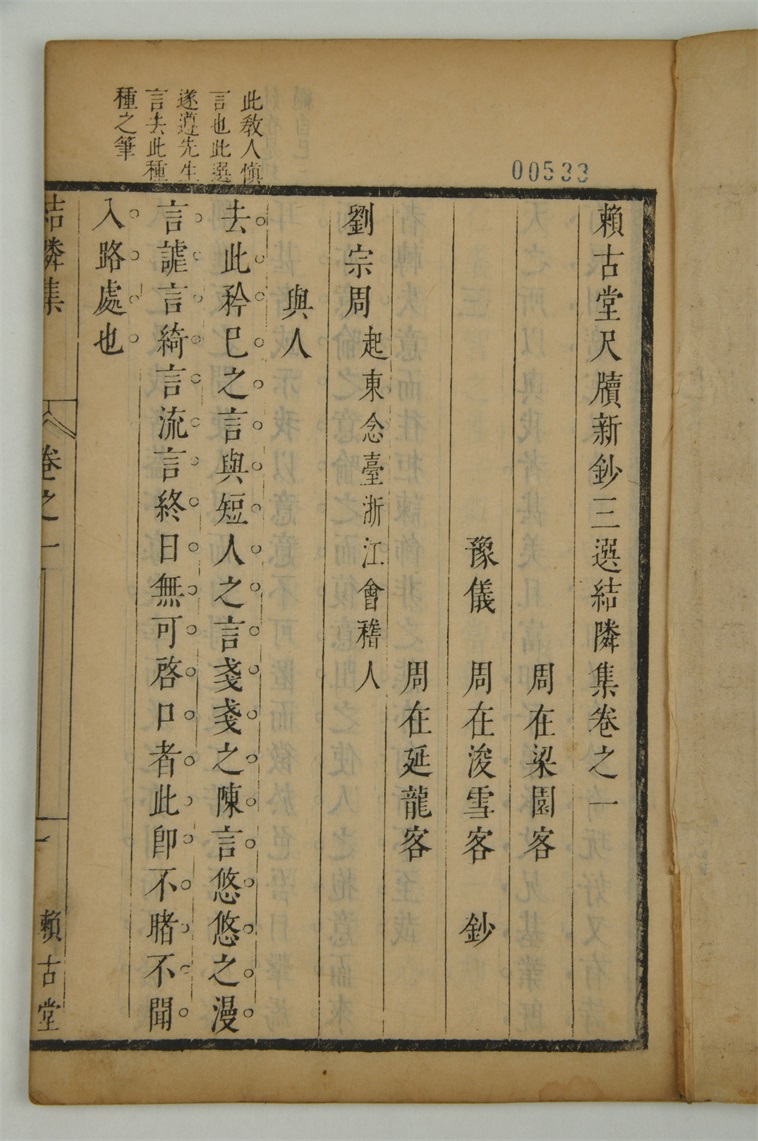 00533
賴古堂尺牘新鈔三選結隣集卷之一
周在梁園客
豫儀 周在浚雪客 鈔
周在延龍客
劉宗周 起東念臺浙江會稽人
與人
去此矜已之言與短人之言戔戔之陳言悠悠之漫
言謔言綺言流言終日無可啓口者此卽不睹不聞
入路處也
此敎人愼
言也此選
遂遵先生
言去此種
種之筆
結隣集
卷之一
一
賴古堂